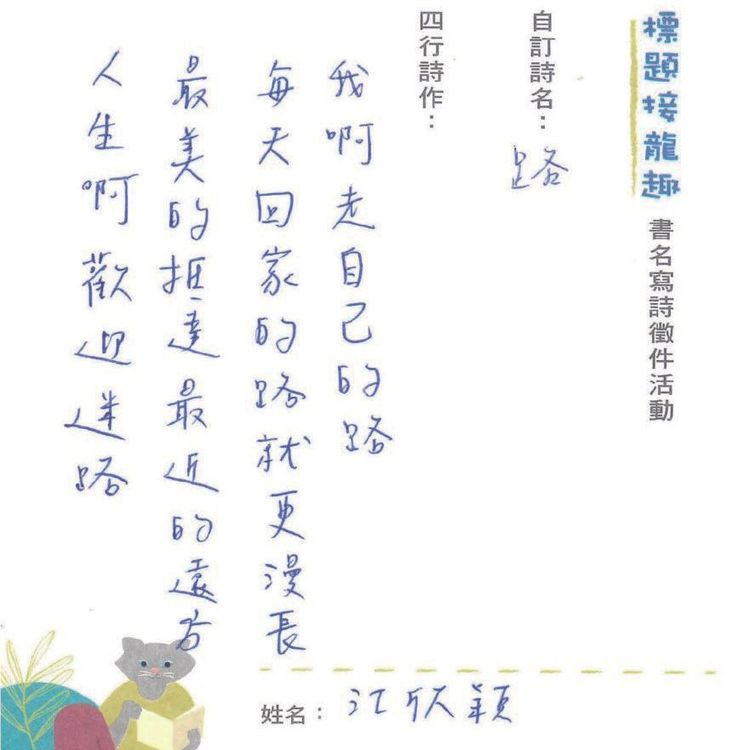 標題接龍趣
書名寫詩徵件活動
自訂詩名：路
四行詩作：
我啊走自己的路
每天回家的路就更漫長
最美的抵達最近的遠方
人生啊歡迎迷路
姓名：江欣穎